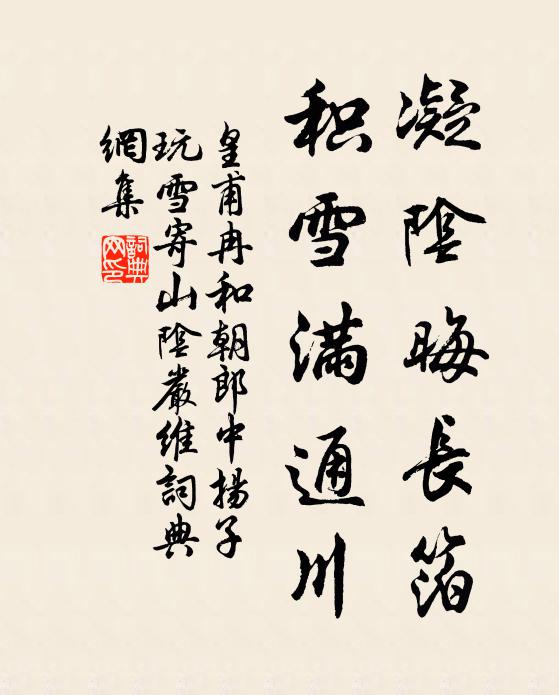 凝陰晦長箔
积雪滿通川
皇甫冉和朝郎中揚子
玩雪寄山陰嚴維詞典
網集
詞典
网印